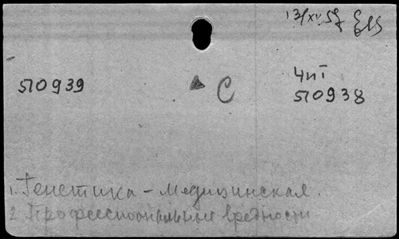 13/XI.57
510939 C 4пТ
510938
1. Генетика – медицинская.
2. Профессиональные вредности